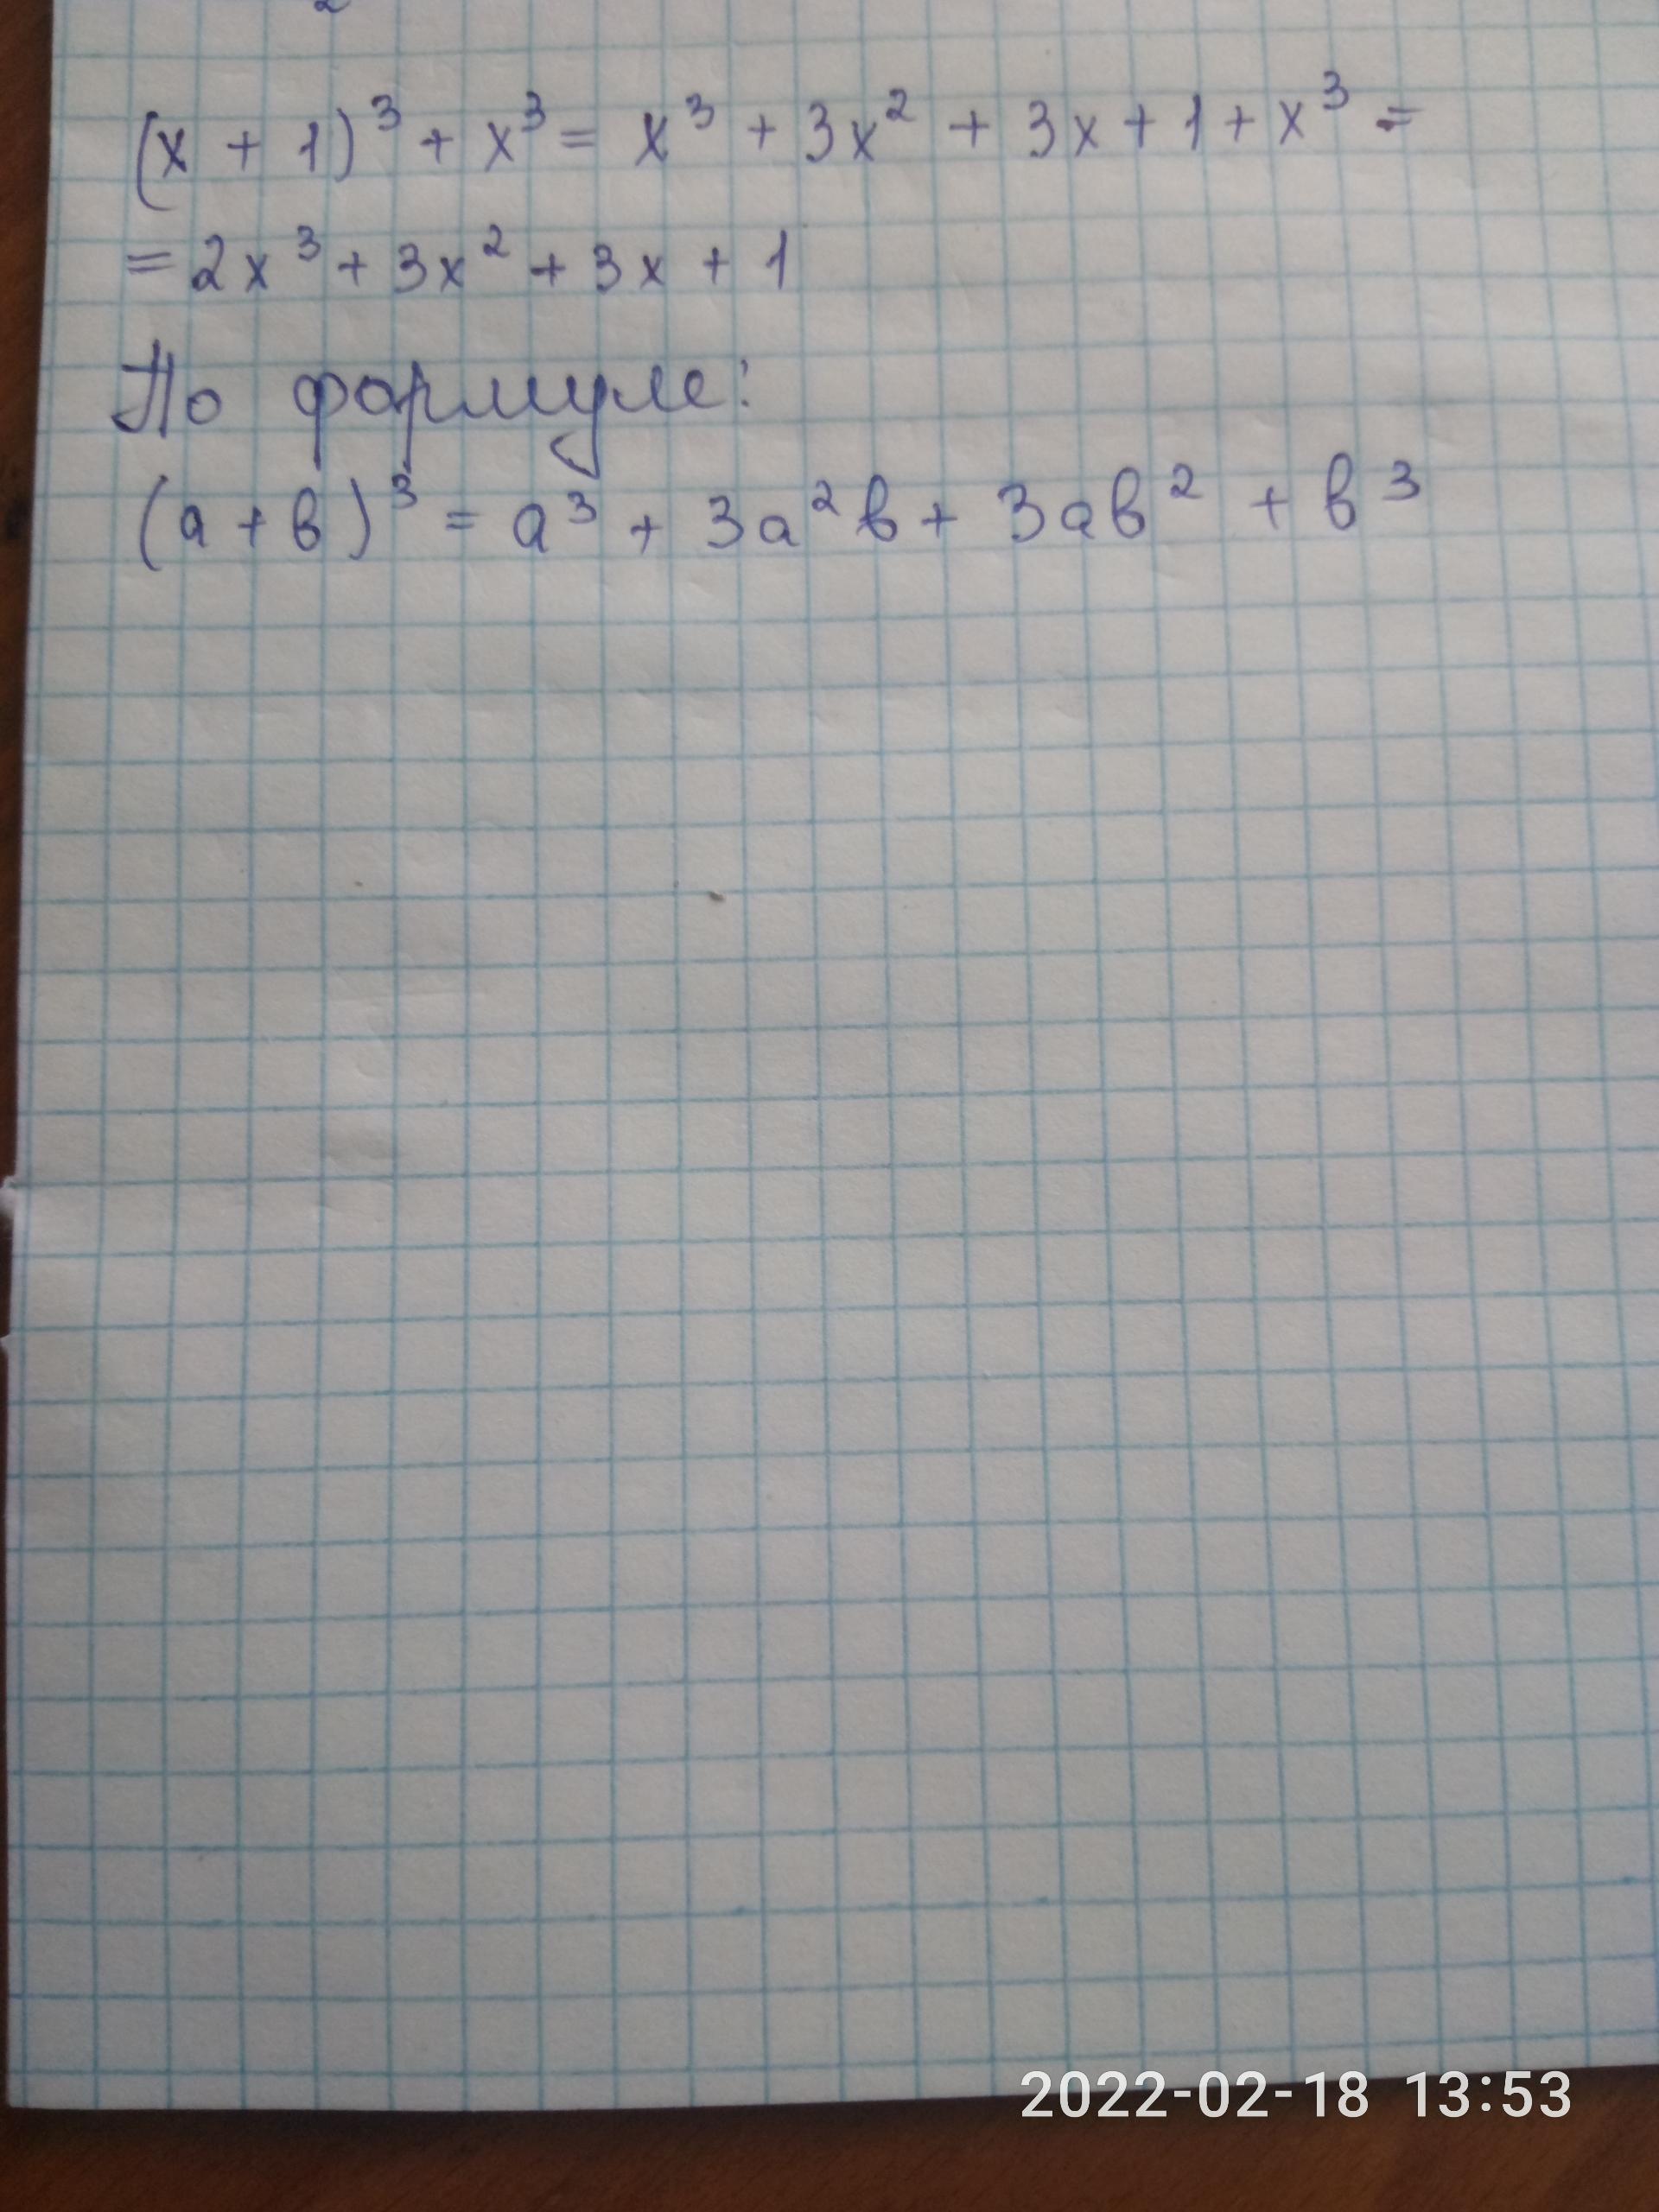 2
(x + 1)³ + x³ = x³ + 3x² + 3x + 1 + x³ =
= 2x³ + 3x² + 3x + 1
По формуле:
(а + в)³ = а³ + 3а²в + 3ав² + в³
2022-02-18 13:53